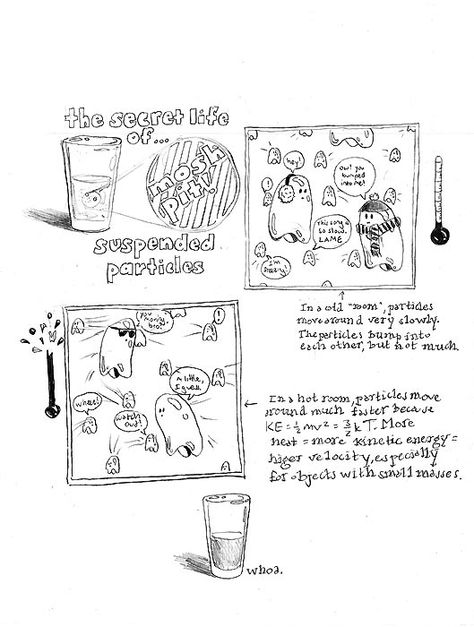 the secret life
of...
mosh
pit!
suspended
particles
hey!
ow! you
bumped
into me!
!
This song is
so slow.
LAME
I'm
freezy!
In a cold "room", particles
move around very slowly.
The particles bump into
each other, but not much.
you
moving,
bro?
!
A little,
I guess.
whee!
watch
out!
In a hot room, particles move
around much faster because
KE = ½ mv² = 3/2 kT. More
heat = more kinetic energy =
higer velocity, especially
for objects with small masses.
whoa.